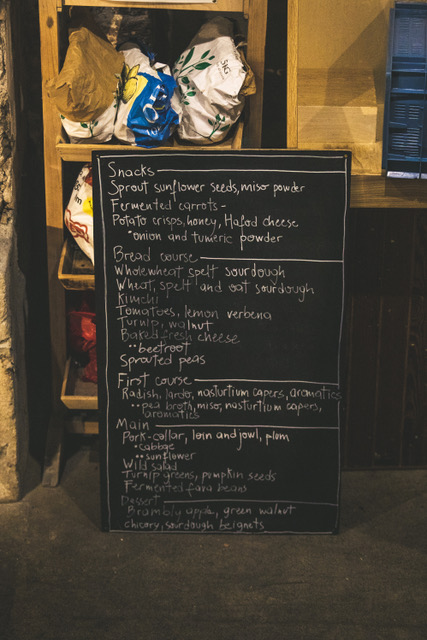 5KG
Snacks
Sprout sunflower seeds, miso powder
Fermented carrots -
Potato crisps, honey, Hafod cheese
*onion and tumeric powder
Bread course
Wholewheat spelt sourdough
Wheat, spelt and oat sourdough
Kimchi
Tomatoes, lemon verbena
Turnip, walnut
Baked fresh cheese
**beetroot
Sprouted peas
First course
Radish, lardo, nasturtium capers, aromatics
**pea broth, miso, nasturtium capers,
aromatics
Main
Pork-collar, loin and jowl, plum
*cabbge
**sunflower
Wild salad
Turnip greens, pumpkin seeds
Fermented fava beans
Dessert
Brambly apple, green walnut
chicory, sourdough beignets